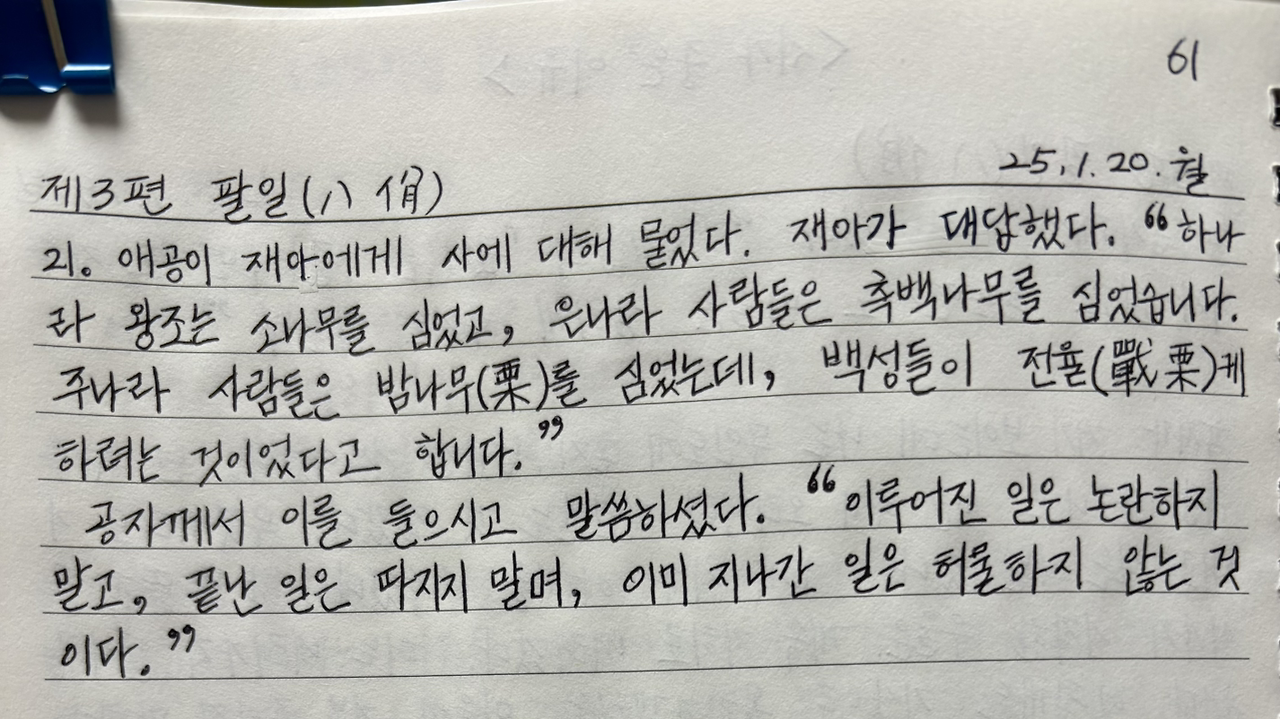 61
제3편 팔일(八佾) 25.1.20.월
21. 애공이 재아에게 사에 대해 물었다. 재아가 대답했다. "하나
라 왕조는 소나무를 심었고, 은나라 사람들은 측백나무를 심었습니다.
주나라 사람들은 밤나무(栗)를 심었는데, 백성들이 전율(戰栗)케
하려는 것이었다고 합니다."
공자께서 이를 들으시고 말씀하셨다. "이루어진 일은 논란하지
말고, 끝난 일은 따지지 말며, 이미 지나간 일은 허물하지 않는 것
이다."